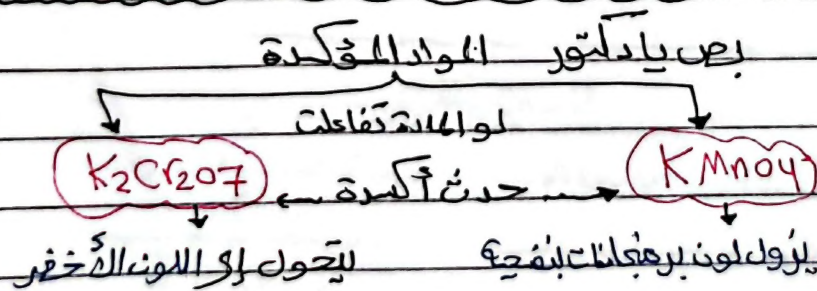 بص يا دكتور المواد المؤكسدة
لو المادة تفاعلت
KMnO4 حدث أكسدة K2Cr2O7
يزول لون برمنجانات البنفسجية يتحول إلى اللون الأخضر